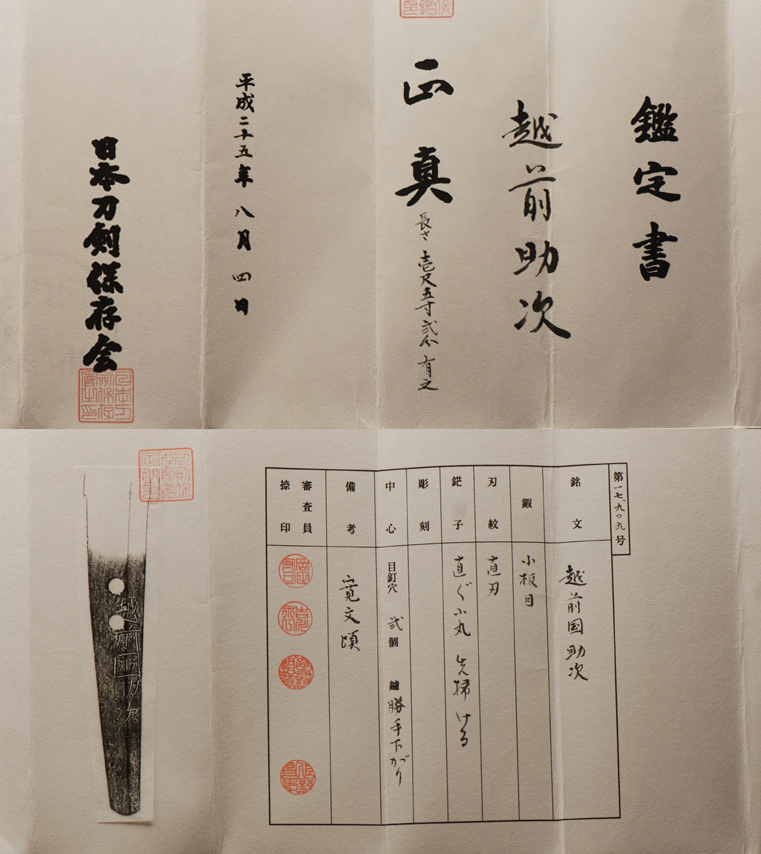 鑑定書
越前助次
正真
長さ 壱尺五寸弐分 有之
平成二十五年 八月 四日
日本刀剣保存会
第一七、九〇九号
銘文 越前国助次
鍜 小板目
刃紋 直刃
鋩子 直ぐ小丸 先掃ける
彫刻
中心 目釘穴 弐個 鑢 勝手下がり
備考 寛文頃
審査員
捺印
越前国助次